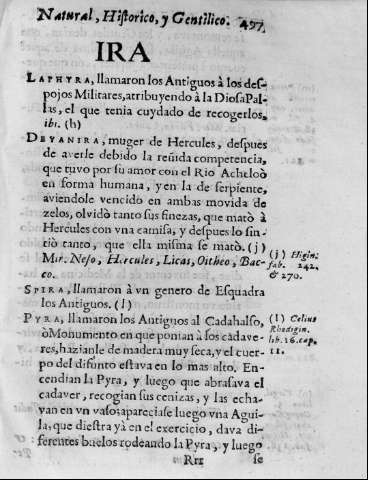 Natural, Historico, y Gentilico. 497
IRA
LAPHYRA, llamaron los Antiguos à los des-
pojos Militares, atribuyendo à la Diosa Pal-
las, el que tenia cuydado de recogerlos,
ibi. (h)
DEYANIRA, muger de Hercules, despues
de averle debido la reñida competencia,
que tuvo por su amor con el Rio Acheloò
en forma humana, y en la de serpiente,
aviendole vencido en ambas movida de
zelos, olvidò tanto sus finezas, que matò à
Hercules con vna camisa, y despues lo sin-
tiò tanto, que ella misma se matò. (j)
Mir. Neso, Hercules, Licas, Oitheo, Bac-
co.
(j) Higin.
fab. 242.
& 270.
SPIRA, llamaron à vn genero de Esquadra
los Antiguos. (l)
PYRA, llamaron los Antiguos al Cadahalso,
ò Monumento en que ponian à los cadave-
res, hazianle de madera muy seca, y el cuer-
po del difunto estava en lo mas alto. En-
cendian la Pyra, y luego que abrasava el
cadaver, recogian sus cenizas, y las echa-
van en vn vaso: apareciase luego vna Agui-
la, que diestra yà en el exercicio, dava di-
ferentes buelos rodeando la Pyra, y luego
(l) Celius
Rhodigin.
lib. 26. cap.
11.
Rrr se